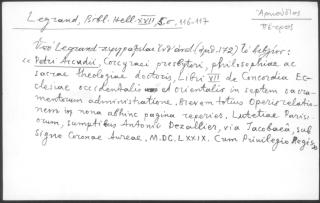 Legrand, Bibl. Hell. XVII, 5 σσ. 116-117
Ἀρκούδιος
Πέτρος
Ὑπὸ Legrand περιγράφεται ὑπ' ἀρ. (ἀριθ. 172) τὸ βιβλίον:
« Petri Arcudii, Corcyraei presbyteri, philosophiae ac
sacrae theologiae doctoris, Libri VII de Concordia Ec-
clesiae occidentalis et orientalis in septem sacra-
mentorum administratione. Brevem totius Operis relatio-
nem in nona abhinc pagina reperies. Lutetiae Parisi-
orum, sumptibus Antonii Dezallier, via Jacobaeâ, sub
Signo Coronae Aureae, M.DC.LXXIX. Cum Privilegio Regis »